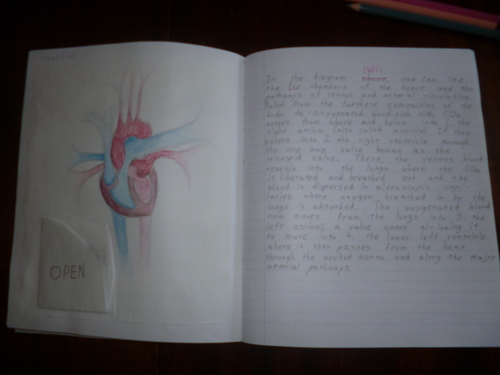 OPEN
(left)
In the diagram above, one can see
the four chambers of the heart and the
pathways of venous and arterial circulation.
from the furthest extremities of the
body, de-oxygenated blood rich with CO2
enters from above and below into 1. the
right atrium (also called auricle). It then
enters into 2. the right ventricle through
the one-way valve known as the
tricuspid valve. There, the venous blood
travels into the lungs where the CO2
is liberated and breathed out and the
blood is dispersed in microscopic capil-
laries where oxygen breathed in by the
lungs is absorbed. The oxygenated blood
now moves from the lungs into 3. the
left atrium; a valve opens allowing it
to move into 4. the lower left ventricle
where it then passes from the heart
through the arched aorta and along the major
arterial pathways.